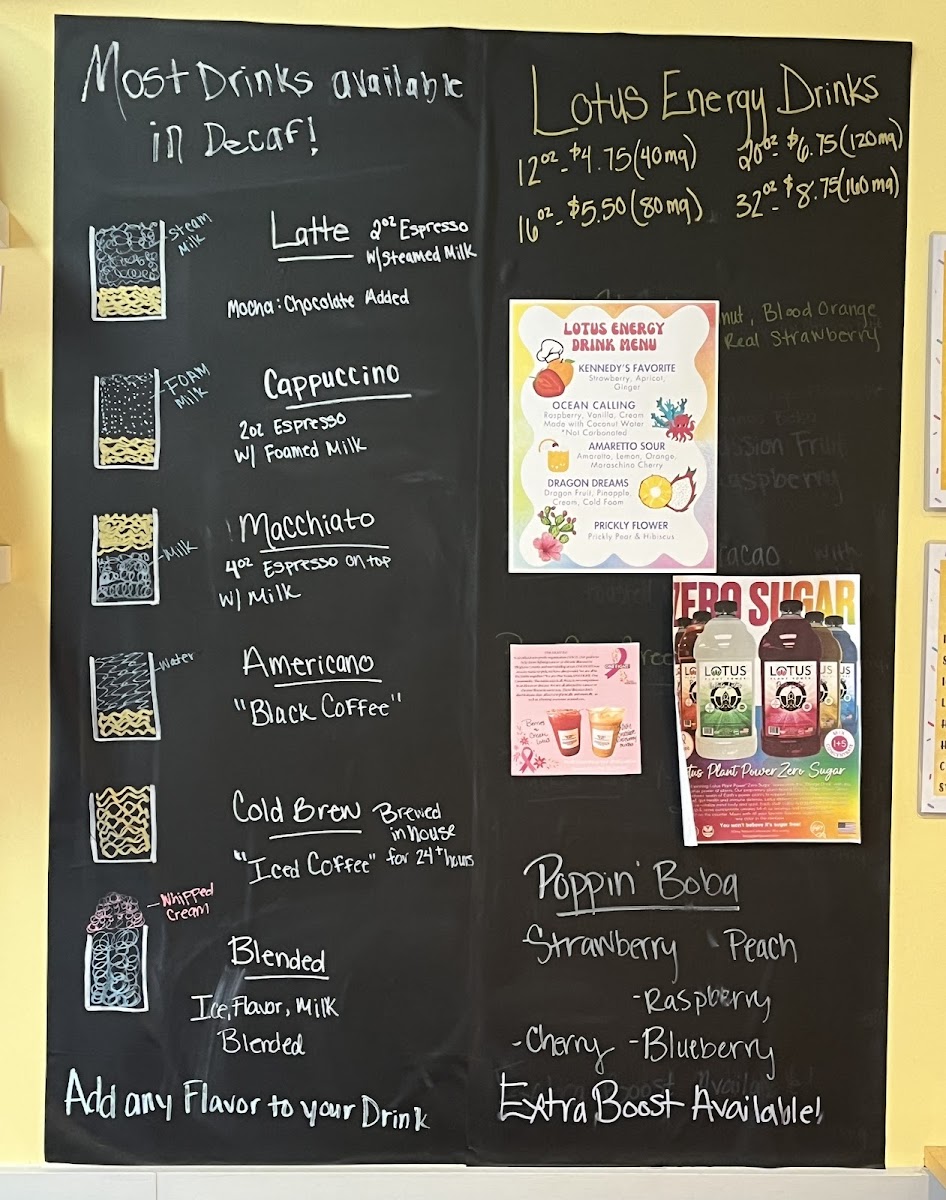 Most Drinks available
in Decaf!
Steam
Milk
Latte 2oz Espresso
w/Steamed Milk
Mocha: Chocolate Added
Foam
Milk
Cappuccino
2oz Espresso
w/ Foamed Milk
Macchiato
Milk
4oz Espresso on top
w/ Milk
Water
Americano
"Black Coffee"
Cold Brew Brewed
in house
"Iced Coffee" for 24+ hours
Whipped
Cream
Blended
Ice, Flavor, Milk
Blended
Add any Flavor to your Drink
Lotus Energy Drinks
12oz - $4.75 (40mg) 20oz - $6.75 (120mg)
16oz - $5.50 (80mg) 32oz - $8.75 (160mg)
nut, Blood Orange
Real Strawberry
LOTUS ENERGY
DRINK MENU
KENNEDY'S FAVORITE
Strawberry, Apricot,
Ginger
OCEAN CALLING
Raspberry, Vanilla, Cream
Made with Coconut Water
*Not Carbonated
AMARETTO SOUR
Amaretto, Lemon, Orange,
Maraschino Cherry
DRAGON DREAMS
Dragon Fruit, Pineapple,
Cream, Cold Foam
PRICKLY FLOWER
Prickly Pear & Hibiscus
ssion Fruit
aspberry
cacao with
ZERO SUGAR
LOTUS
LOTUS
tus Plant Power Zero Sugar
You won't believe it's sugar free!
Berries
n
Cream
Lotus
Poppin' Boba
-Strawberry -Peach
-Raspberry
-Cherry -Blueberry
Extra Boost Available!